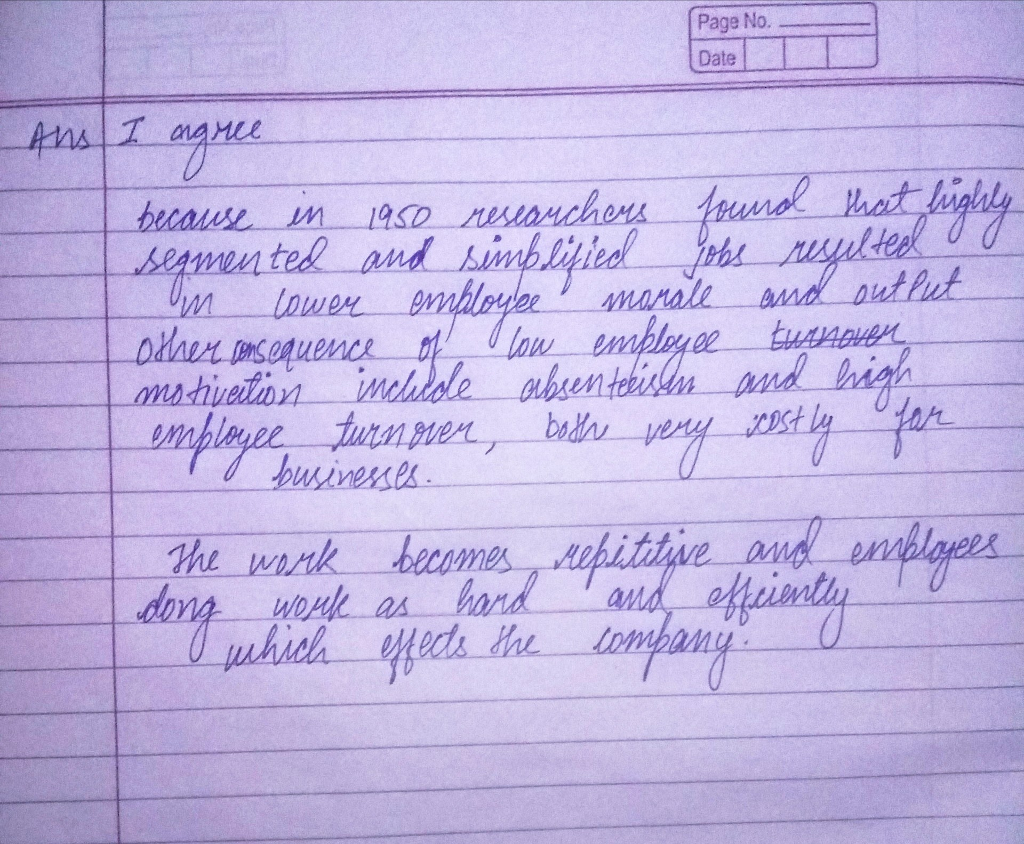 Page No.
Date
Ans I agree
because in 1950 researchers found that highly
segmented and simplified jobs resulted
in lower employee morale and output
other consequence of low employee turnover
motivation include absenteeism and high
employee turnover, both very costly for
businesses.
The work becomes repititive and employees
dong work as hard and effciently
which effects the company.